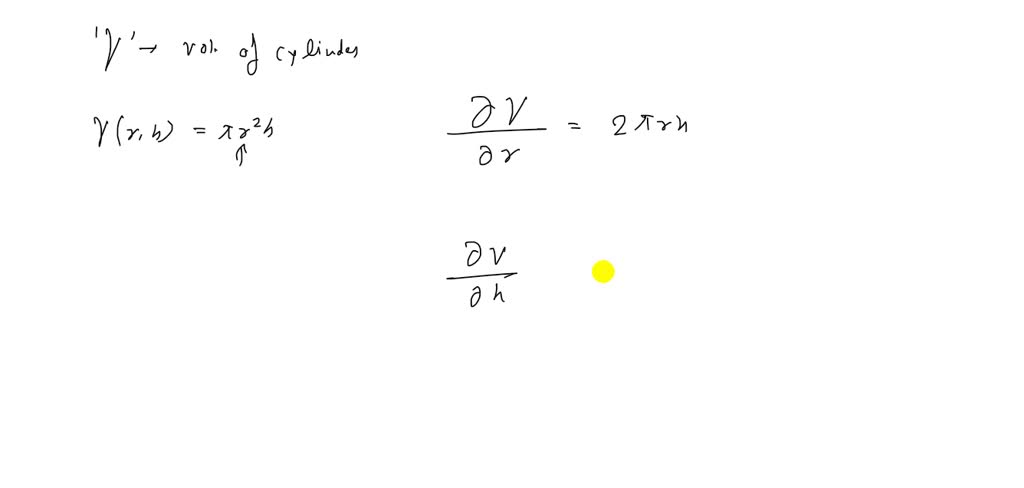 'V' → vol. of cylinder
V(r, h) = πr²h
↑
∂V/∂r = 2πrh
∂V/∂h